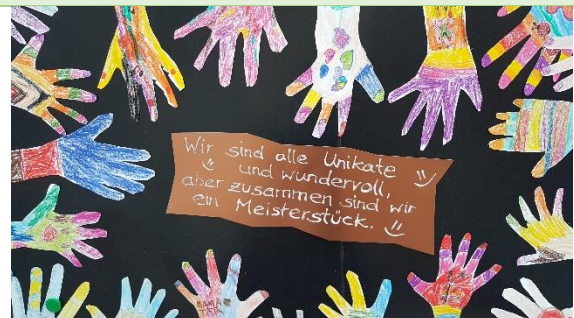 Wir sind alle Unikate
und wundervoll,
aber zusammen sind wir
ein Meisterstück.
MAMA